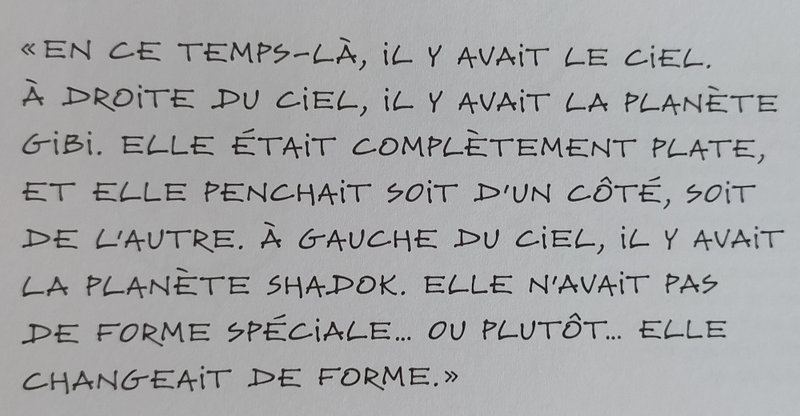 « EN CE TEMPS-LÀ, iL Y AVAiT LE CiEL.
À DROiTE DU CiEL, iL Y AVAiT LA PLANÈTE
GiBi. ELLE ÉTAiT COMPLÈTEMENT PLATE,
ET ELLE PENCHAiT SOiT D'UN CÔTÉ, SOiT
DE L'AUTRE. À GAUCHE DU CiEL, iL Y AVAiT
LA PLANÈTE SHADOK. ELLE N'AVAiT PAS
DE FORME SPÉCiALE... OU PLUTÔT... ELLE
CHANGEAiT DE FORME. »